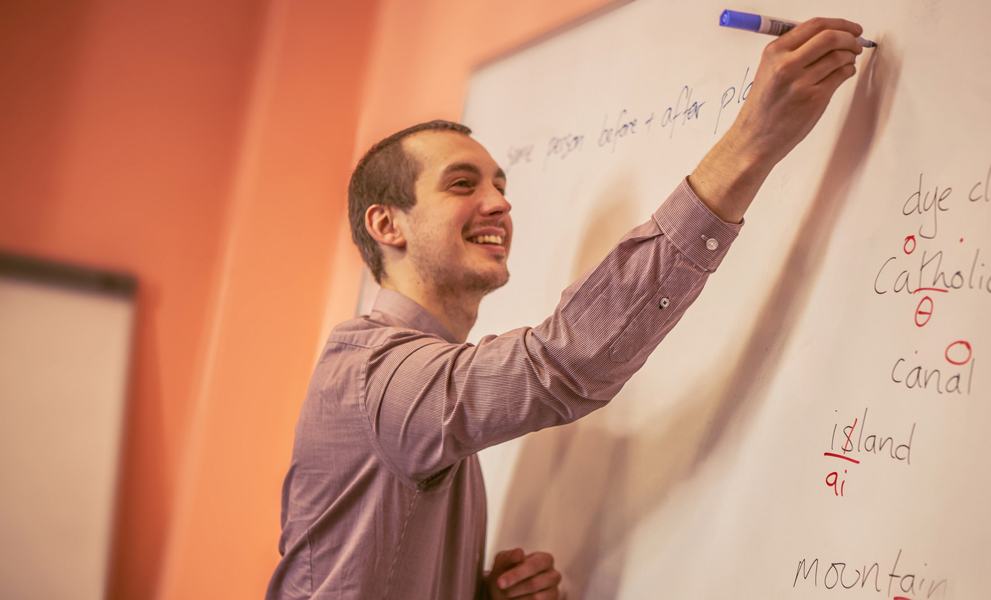 same person before + after pla
dye cl
Catholic
θ
canal
island
ai
mountain